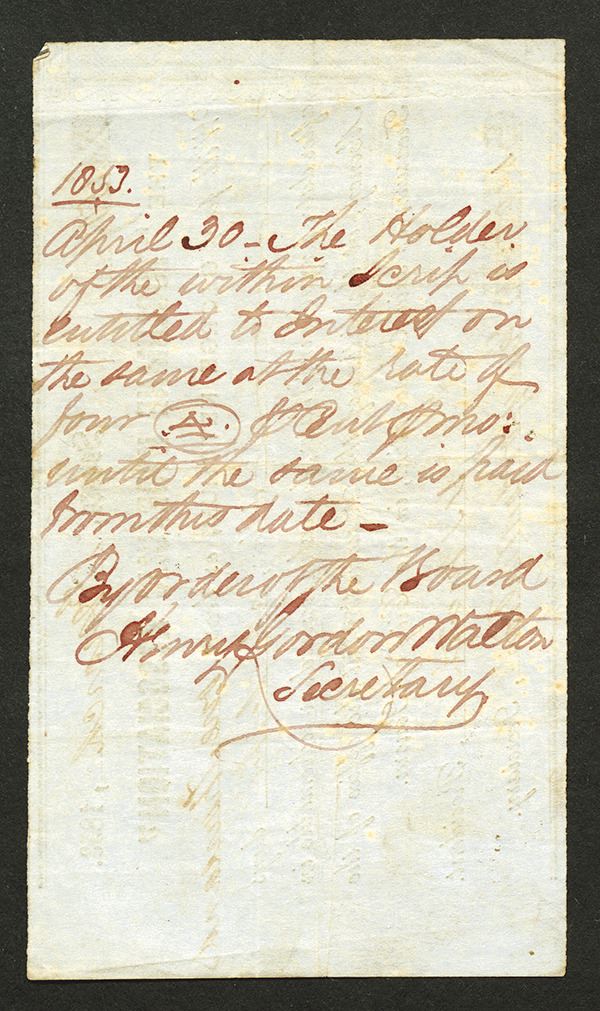 1853.
April 30 - The Holder
of the within Scrip is
entitled to Interest on
the same at the rate of
four (4.) P Cent P mo:
until the same is paid
from this date -
By order of the Board
Henry Gordon Walton
Secretary